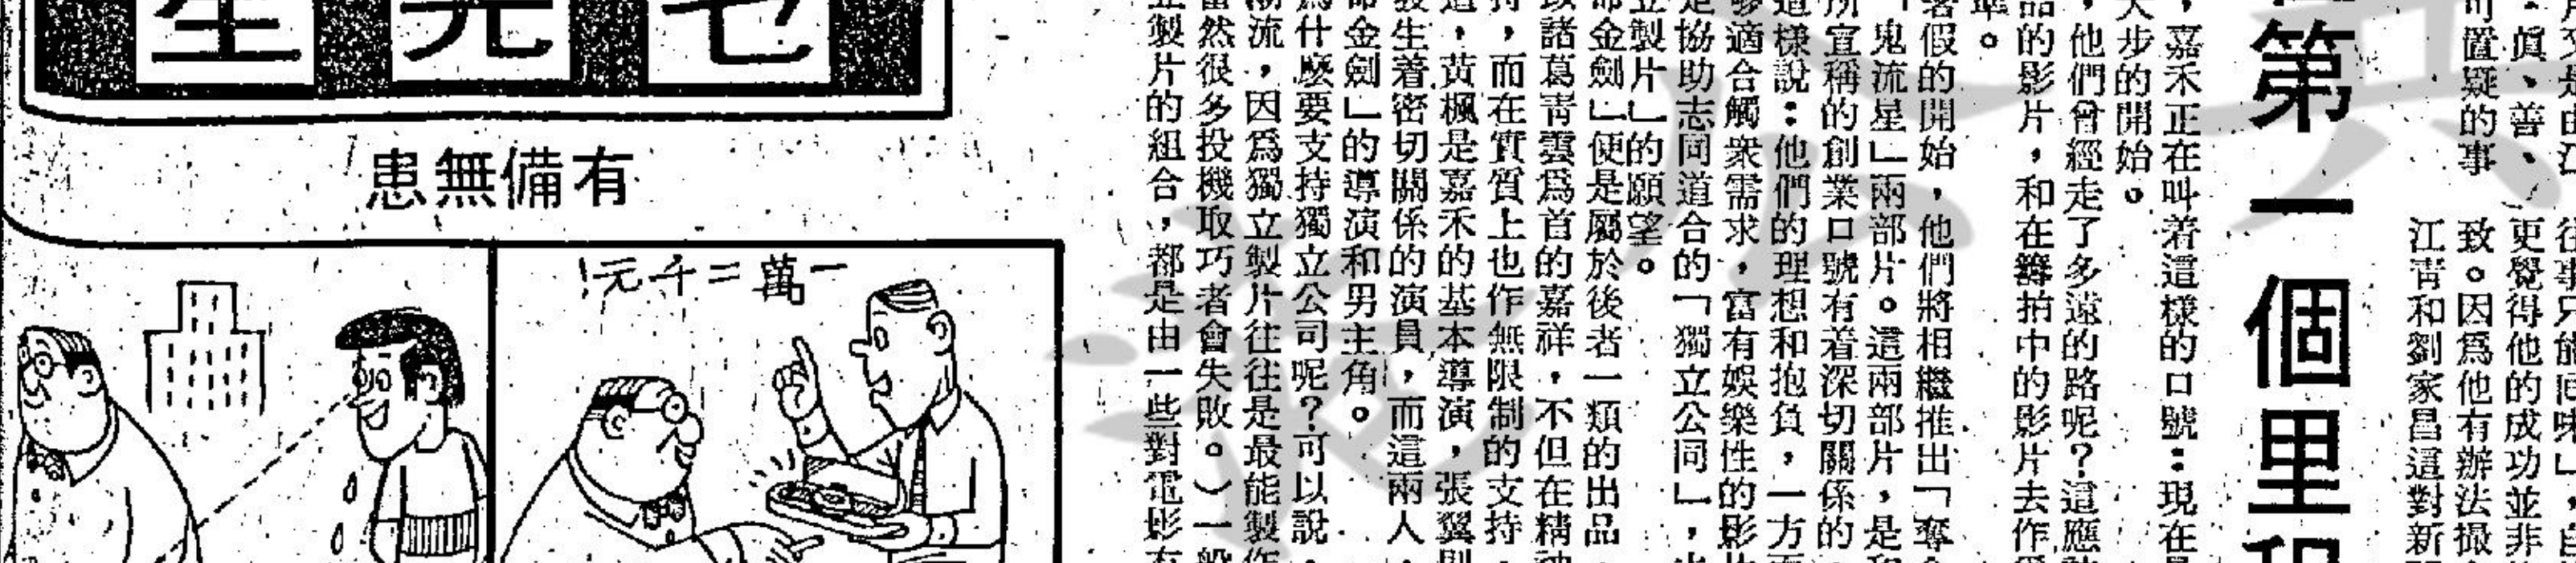 又是由江
、眞、善、
可置疑的事
往事只能回味」，自
更覺得他的成功並非
致。因爲他有辦法撮
江青和劉家昌這對新
第一個里程
，嘉禾正在叫着這樣的口號：現在是
大步的開始。
，他們曾經走了多遠的路呢？這應
品的影片，和在籌拍中的影片去作
準。
着假的開始，他們將相繼推出「奪
「鬼流星」兩部片。這兩部片，是和
所宣稱的創業口號有着深切關係的
這樣說：他們的理想和抱負，一方面
够適合觸衆需求，富有娛樂性的影片
是協助志同道合的「獨立公司」，
立製片」的願望。
命金劍」便是屬於後者一類的出品
以諸葛靑雲爲首的嘉祥，不但在精神
持，而在實質上也作無限制的支持，
道，黃楓是嘉禾的基本導演，張翼則
發生着密切關係的演員，而這兩人，
命金劍」的導演和男主角。
爲什麼要支持獨立公司呢？可以說，
潮流，因爲獨立製片往往是最能製作
當然很多投機取巧者會失敗。）一般
立製片的組合，都是由一些對電影有
有備無患
一萬二千元！